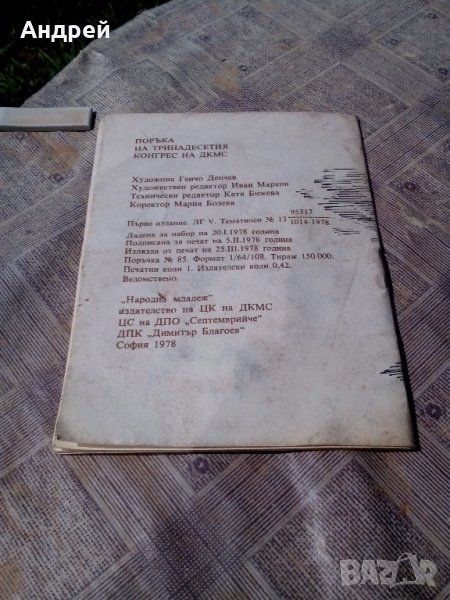 Андрей
ПОРЪКА
НА ТРИНАДЕСЕТИЯ
КОНГРЕС НА ДКМС
Художник Генчо Денчев
Художествен редактор Иван Марков
Технически редактор Катя Бижева
Коректор Мария Бозева
Първо издание. ЛГ V. Тематичен № 13 95317/1014-1978
Дадена за набор на 20.I.1978 година
Подписана за печат на 5.II.1978 година
Излязла от печат на 25.III.1978 година
Поръчка № 85. Формат 1/64/108. Тираж 150 000.
Печатни коли 1. Издателски коли 0,42.
Ведомствено.
„Народна младеж"
издателство на ЦК на ДКМС
ЦС на ДПО „Септемврийче"
ДПК „Димитър Благоев"
София 1978
BAZAR